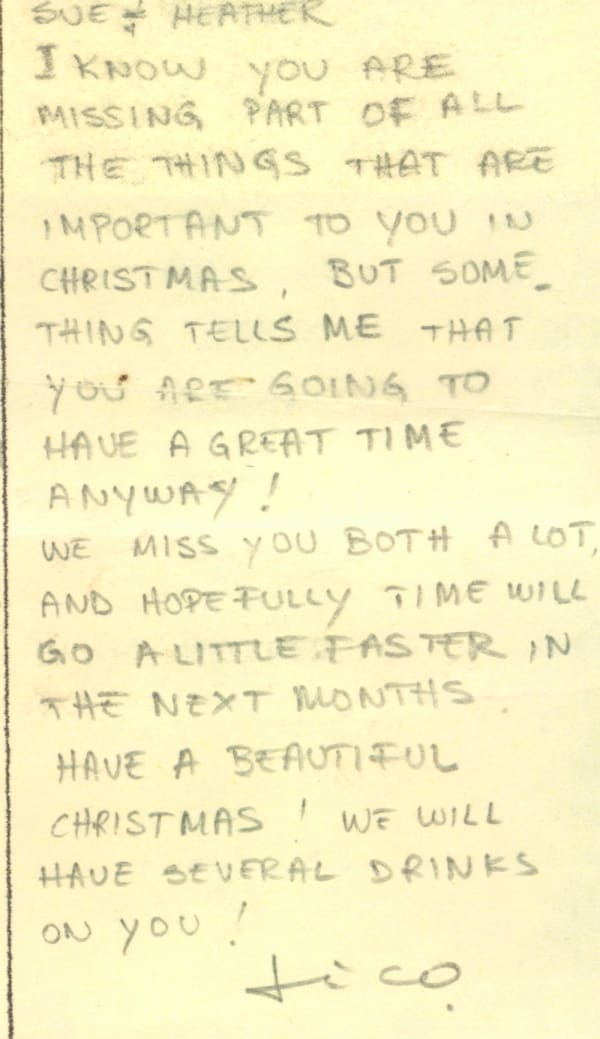 SUE & HEATHER
I KNOW YOU ARE
MISSING PART OF ALL
THE THINGS THAT ARE
IMPORTANT TO YOU IN
CHRISTMAS, BUT SOME-
THING TELLS ME THAT
YOU ARE GOING TO
HAVE A GREAT TIME
ANYWAY!
WE MISS YOU BOTH A LOT,
AND HOPEFULLY TIME WILL
GO A LITTLE FASTER IN
THE NEXT MONTHS.
HAVE A BEAUTIFUL
CHRISTMAS! WE WILL
HAVE SEVERAL DRINKS
ON YOU!
tico.